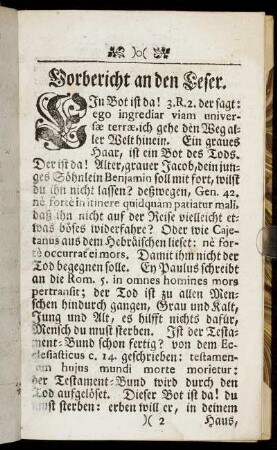 )o(
Vorbericht an den Leser.
EIn Bot ist da! 3. R. 2. der sagt:
ego ingrediar viam univer-
sæ terræ, ich gehe den Weg al-
ler Welt hinein. Ein graues
Haar, ist ein Bot des Tods.
Der ist da! Alter, grauer Jacob, dein jun-
ges Söhnlein Benjamin soll mit fort, wilst
du ihn nicht lassen? deßwegen, Gen. 42.
nè fortè in itinere quidquam patiatur mali,
daß ihn nicht auf der Reise vielleicht et-
was böses widerfahre? Oder wie Caje-
tanus aus dem Hebräischen lieset: nè for-
tè occurrat ei mors. Damit ihn nicht der
Tod begegnen solle. En Paulus schreibt
an die Rom. 5. in omnes homines mors
pertransiit; der Tod ist zu allen Men-
schen hindurch gangen, Grau und Kalt,
Jung und Alt, es hilfft nichts dafür,
Mensch du must sterben. Ist der Testa-
ment-Bund schon fertig? von dem Ec-
clesiasticus c. 14. geschrieben: testamen-
tum hujus mundi morte morietur:
der Testament-Bund wird durch den
Tod aufgelöset. Dieser Bot ist da! du
must sterben: erben will er, in deinem
)( 2 Haus,